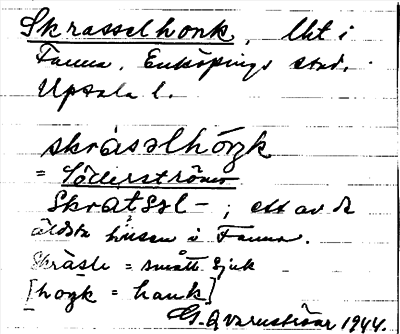 Skrasselhonk, lht i
Fanna, Enköpings stad,
Upsala l.
skràsəlhǫ́ŋk
= Söderströms
Skratsəl- ; ett av de
äldsta husen i Fanna.
Skräsle = smått sjuk
[hoŋk = hank]
G. Qvarnström 1944.